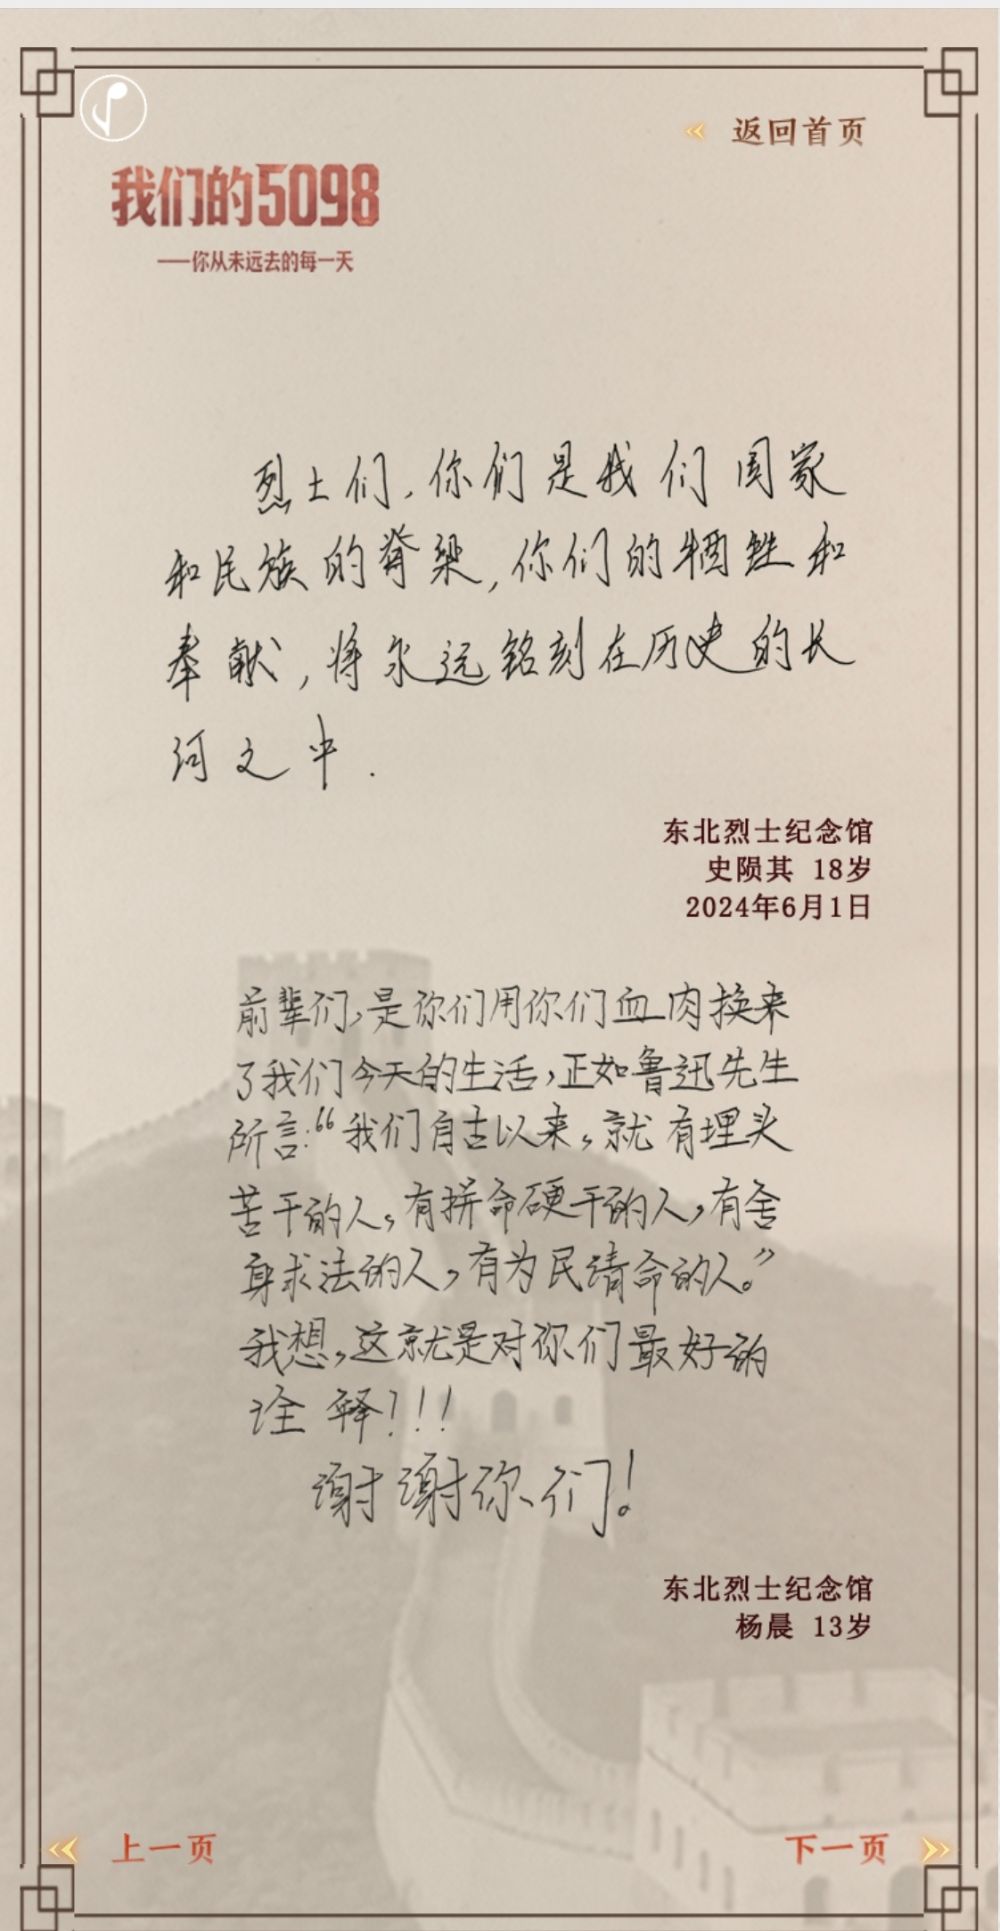 返回首页
我们的5098
——你从未远去的每一天
烈士们,你们是我们国家
和民族的脊梁,你们的牺牲和
奉献,将永远铭刻在历史的长
河之中.
东北烈士纪念馆
史陨其 18岁
2024年6月1日
前辈们,是你们用你们血肉换来
了我们今天的生活,正如鲁迅先生
所言:“我们自古以来,就有埋头
苦干的人,有拼命硬干的人,有舍
身求法的人,有为民请命的人。”
我想,这就是对你们最好的
诠释!!!
谢谢你们!
东北烈士纪念馆
杨晨 13岁
上一页
下一页